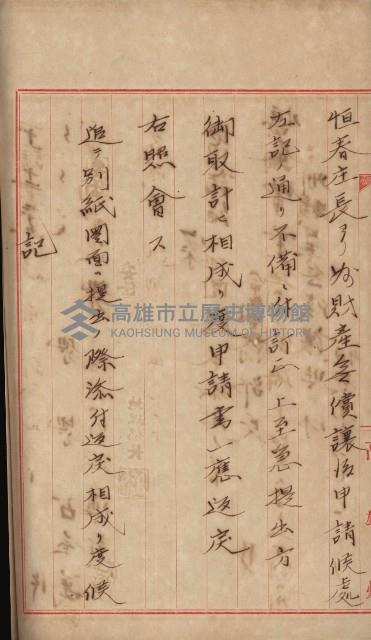 恒春庄長ヨリ財産無償讓給申請候處
左記ノ通リ不備ニ付訂正ノ上至急提出方
御取計ヒ相成リ度申請書一應返戻
右照會ス
追テ別紙図面ハ提出ノ際添付返戻相成リ度候
記
高雄市立歷史博物館
KAOHSIUNG MUSEUM OF HISTORY